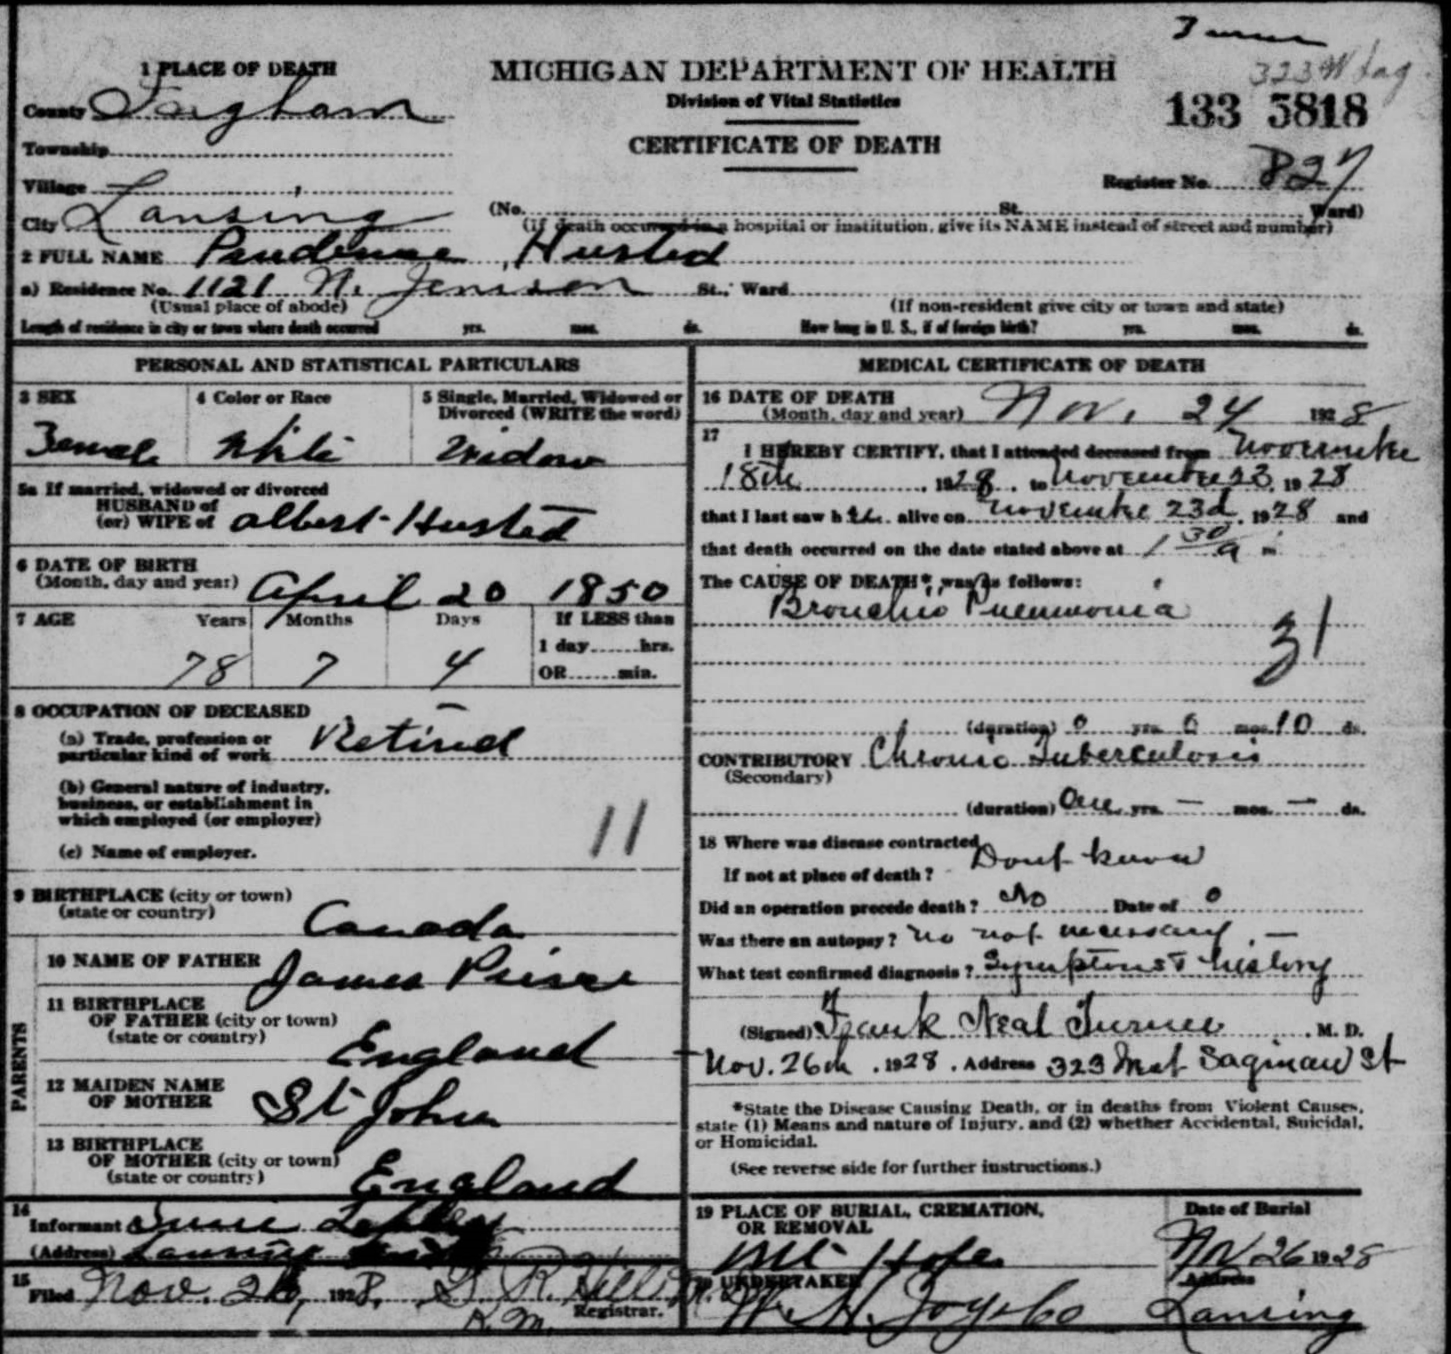 323 W Sag
1 PLACE OF DEATH
MICHIGAN DEPARTMENT OF HEALTH
County Ingham
Division of Vital Statistics
133 5818
Township
CERTIFICATE OF DEATH
Village
Register No. 827
City Lansing
(No. St. Ward)
(If death occurred in a hospital or institution, give its NAME instead of street and number)
2 FULL NAME Prudence Husted
a) Residence No. 1121 N. Jenison St., Ward
(Usual place of abode) (If non-resident give city or town and state)
Length of residence in city or town where death occurred yrs. mos. ds. How long in U. S., if of foreign birth? yrs. mos. ds.
PERSONAL AND STATISTICAL PARTICULARS
3 SEX 4 Color or Race 5 Single, Married, Widowed or
Divorced (WRITE the word)
Female White Widow
5a If married, widowed or divorced
HUSBAND of
(or) WIFE of Albert Husted
6 DATE OF BIRTH
(Month, day and year) April 20 1850
7 AGE Years Months Days If LESS than
1 day hrs.
78 7 4 OR min.
8 OCCUPATION OF DECEASED
(a) Trade, profession or
particular kind of work Retired
(b) General nature of industry,
business, or establishment in
which employed (or employer)
11
(c) Name of employer.
9 BIRTHPLACE (city or town)
(state or country) Canada
PARENTS
10 NAME OF FATHER James Pierce
11 BIRTHPLACE
OF FATHER (city or town)
(state or country) England
12 MAIDEN NAME
OF MOTHER St John
13 BIRTHPLACE
OF MOTHER (city or town)
(state or country) England
14
Informant
(Address) Lansing
15
Filed Nov. 26, 1928.
Registrar.
MEDICAL CERTIFICATE OF DEATH
16 DATE OF DEATH
(Month, day and year) Nov. 24 1928
17
I HEREBY CERTIFY, that I attended deceased from November
18th, 1928, to November 23, 1928
that I last saw her alive on November 23d, 1928 and
that death occurred on the date stated above at 1 30 a m
The CAUSE OF DEATH* was as follows:
Broncho Pneumonia
31
(duration) 0 yrs. 0 mos. 10 ds.
CONTRIBUTORY Chronic Tuberculosis
(Secondary)
(duration) One yrs. — mos. — ds.
18 Where was disease contracted
If not at place of death? Dont know
Did an operation precede death? No Date of 0
Was there an autopsy? No not necessary. —
What test confirmed diagnosis? Symptoms & history
(Signed) Frank Neal Turner M. D.
Nov. 26th, 1928, Address 323 West Saginaw St
*State the Disease Causing Death, or in deaths from Violent Causes,
state (1) Means and nature of Injury, and (2) whether Accidental, Suicidal,
or Homicidal.
(See reverse side for further instructions.)
19 PLACE OF BURIAL, CREMATION,
OR REMOVAL Date of Burial
Mt Hope Nov 26 1928
20 UNDERTAKER Address
Lansing